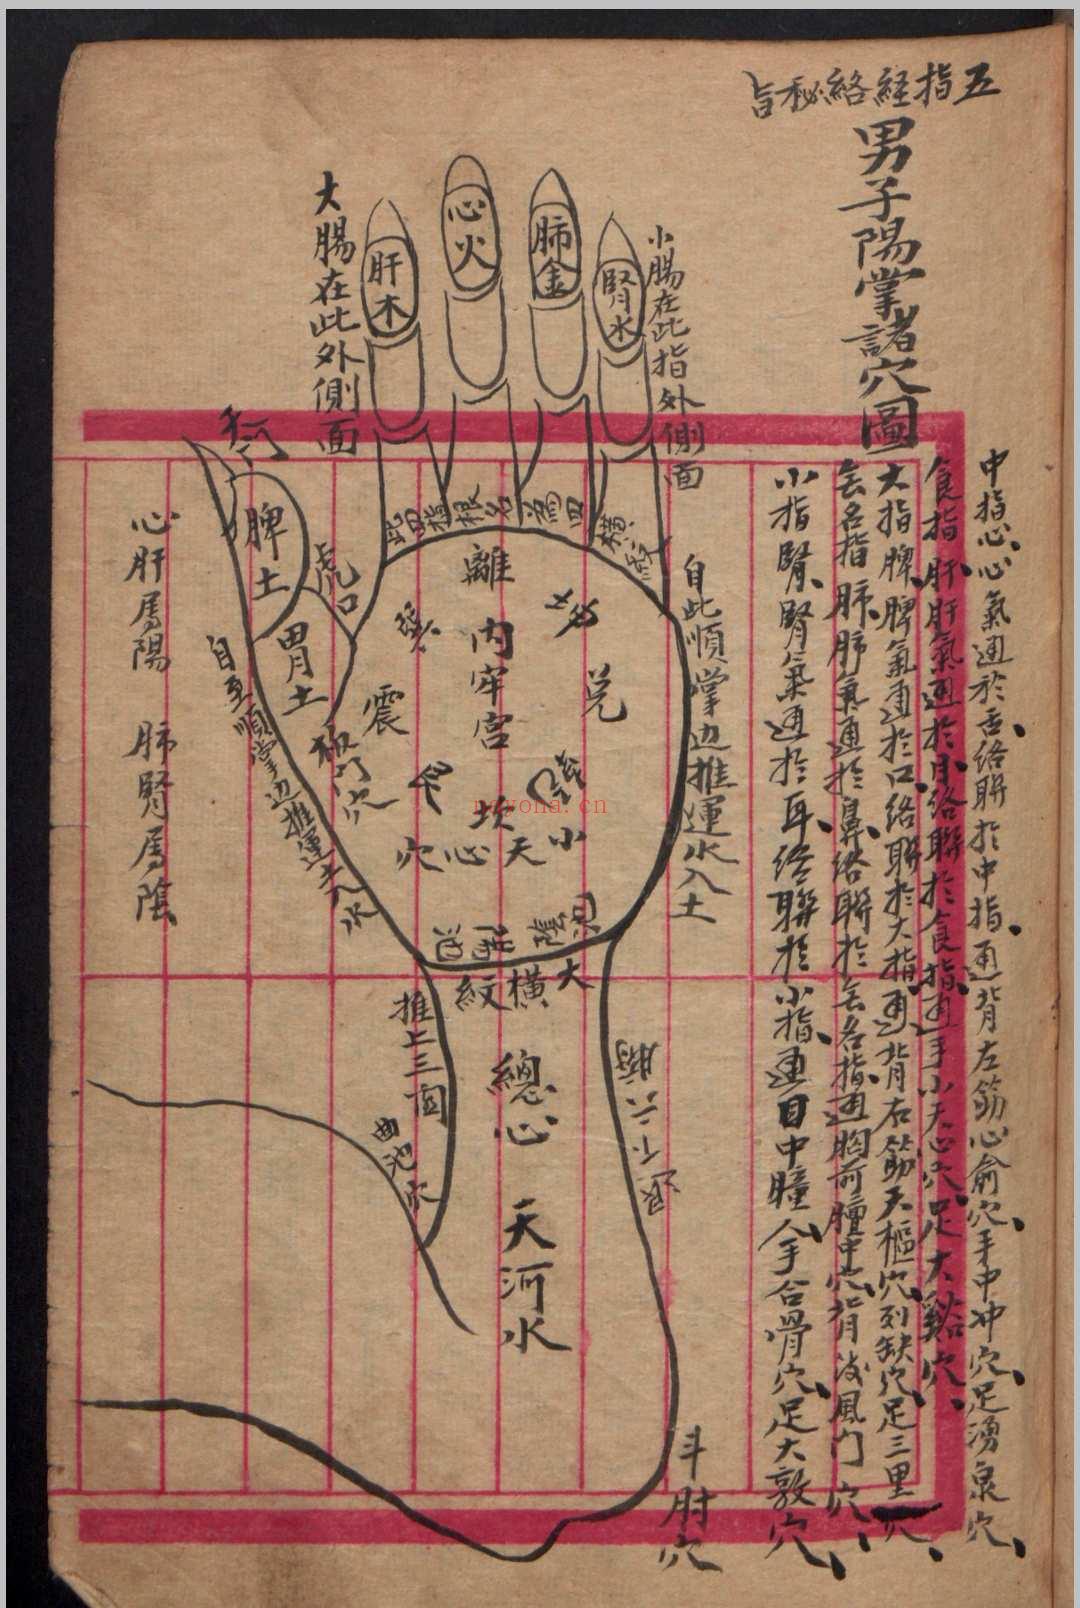 五指経絡秘旨
男子陽掌諸穴圖
中指心、心氣通於舌絡聨於中指、通背左筋心俞穴、手中冲穴、足湧泉穴、
食指、肝肝氣通於目、絡聨於食指、通手小天心穴、足大谿穴、
大指脾、脾氣通於口、絡聨於大指、通背右筋天樞穴、列缺穴、足三里穴、
無名指肺、肺氣通於鼻、絡聨於無名指、通胸前膻中穴、背後風门穴、
小指腎、腎氣通於耳、絡聨於小指、通目中瞳人、手合骨穴、足大敦穴、
小腸在此指外側面
腎水
肺金
心火
肝木
大腸在此外側面
脾土
胃土
虎口
此四指根名為四橫紋
離
内牢宮
兑
震
坎
小天心穴
自此順掌边推運水入土
心肝爲陽 肺腎爲陰
大橫紋
推上三関
總心
曲池穴
天河水
斗肘穴
nayona.cn